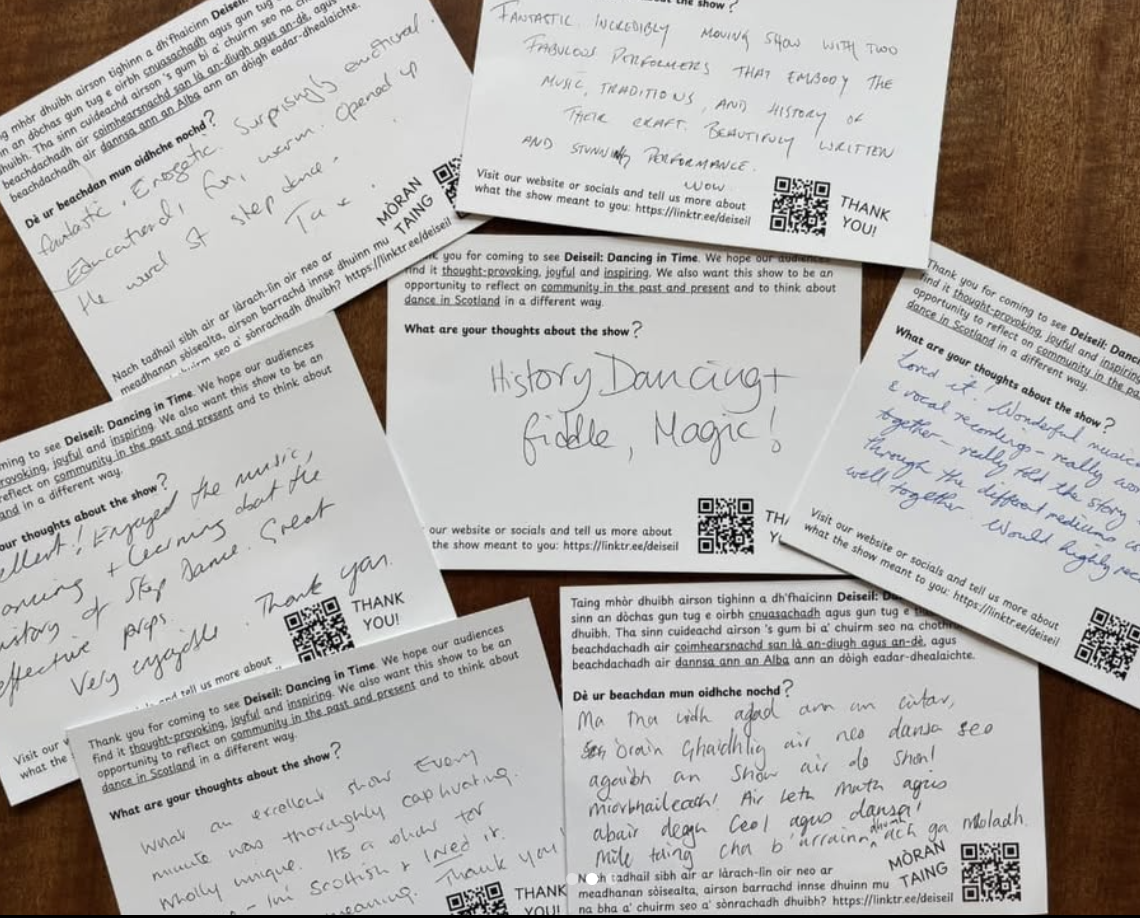 mhòr dhuibh airson tighinn a dh'fhaicinn Deiseil
an dòchas gun tug e oirbh cnuasachadh agus gun tug
dhuibh. Tha sinn cuideachd airson 's gum bi a' chuirm seo na
beachdachadh air coimhearsnachd san là an-diugh agus an-dè, agus
beachdachadh air dannsa ann an Alba ann an dòigh eadar-dhealaichte.
Dè ur beachdan mun oidhche nochd?
fantastic. Energetic. Surprisingly emotional.
Educational, fun, warm. Opened up
the world of step dance.
Ta x
Nach tadhail sibh air ar làrach-lìn oir neo ar
meadhanan sòisealta, airson barrachd innse dhuinn mu
chuirm seo a' sònrachadh dhuibh? https://linktr.ee/deiseil
MÒRAN
TAING
the show?
FANTASTIC. INCREDIBLY MOVING SHOW WITH TWO
FABULOUS PERFORMERS THAT EMBODY THE
MUSIC, TRADITIONS, AND HISTORY OF
THEIR CRAFT. BEAUTIFULLY WRITTEN
AND STUNNING PERFORMANCE.
WOW.
Visit our website or socials and tell us more about
what the show meant to you: https://linktr.ee/deiseil
THANK
YOU!
you for coming to see Deiseil: Dancing in Time. We hope our audiences
find it thought-provoking, joyful and inspiring. We also want this show to be an
opportunity to reflect on community in the past and present and to think about
dance in Scotland in a different way.
What are your thoughts about the show?
History Dancing +
fiddle, Magic!
our website or socials and tell us more about
the show meant to you: https://linktr.ee/deiseil
Thank you for coming to see Deiseil:
find it thought-provoking, joyful and inspiring
opportunity to reflect on community in the
dance in Scotland in a different way.
What are your thoughts about the show?
Loved it! Wonderful music
& vocal recordings - really
together - really told the story
through the different mediums
well together. Would highly
Visit our website or socials and tell us more about
what the show meant to you: https://linktr.ee/deiseil
coming to see Deiseil: Dancing in Time. We hope our audiences
joyful and inspiring. We also want this show to be an
reflect on community in the past and present and to think about
and in a different way.
your thoughts about the show?
Enjoyed the music,
+ learning about the
of Step Dance. Great
effective props.
Very enjoyable. Thank you.
THANK
YOU!
tell us more about
Visit our
what the
Thank you for coming to see Deiseil: Dancing in Time. We hope our audiences
find it thought-provoking, joyful and inspiring. We also want this show to be an
opportunity to reflect on community in the past and present and to think about
dance in Scotland in a different way.
What are your thoughts about the show?
What an excellent show Every
minute was thoroughly captivating.
wholly unique. Its a show for
- I'm Scottish & loved it.
meaning. Thank you
THANK
YOU!
Taing mhòr dhuibh airson tighinn a dh'fhaicinn Deiseil:
sinn an dòchas gun tug e oirbh cnuasachadh agus gun tug e
dhuibh. Tha sinn cuideachd airson 's gum bi a' chuirm seo na
beachdachadh air coimhearsnachd san là an-diugh agus an-dè, agus
beachdachadh air dannsa ann an Alba ann an dòigh eadar-dhealaichte.
Dè ur beachdan mun oidhche nochd?
Ma tha ùidh agad ann an cùtar,
òrain Ghàidhlig air neo dansa seo
agaibh an Show air do Shon!
miorbhaileach! Air leth math agus
abair deagh Ceol agus dansa!
Mìle taing cha b'urrainn dhomh ach ga mholadh.
Nach tadhail sibh air ar làrach-lìn oir neo ar
meadhanan sòisealta, airson barrachd innse dhuinn mu
na bha a' chuirm seo a' sònrachadh dhuibh? https://linktr.ee/deiseil
MÒRAN
TAING